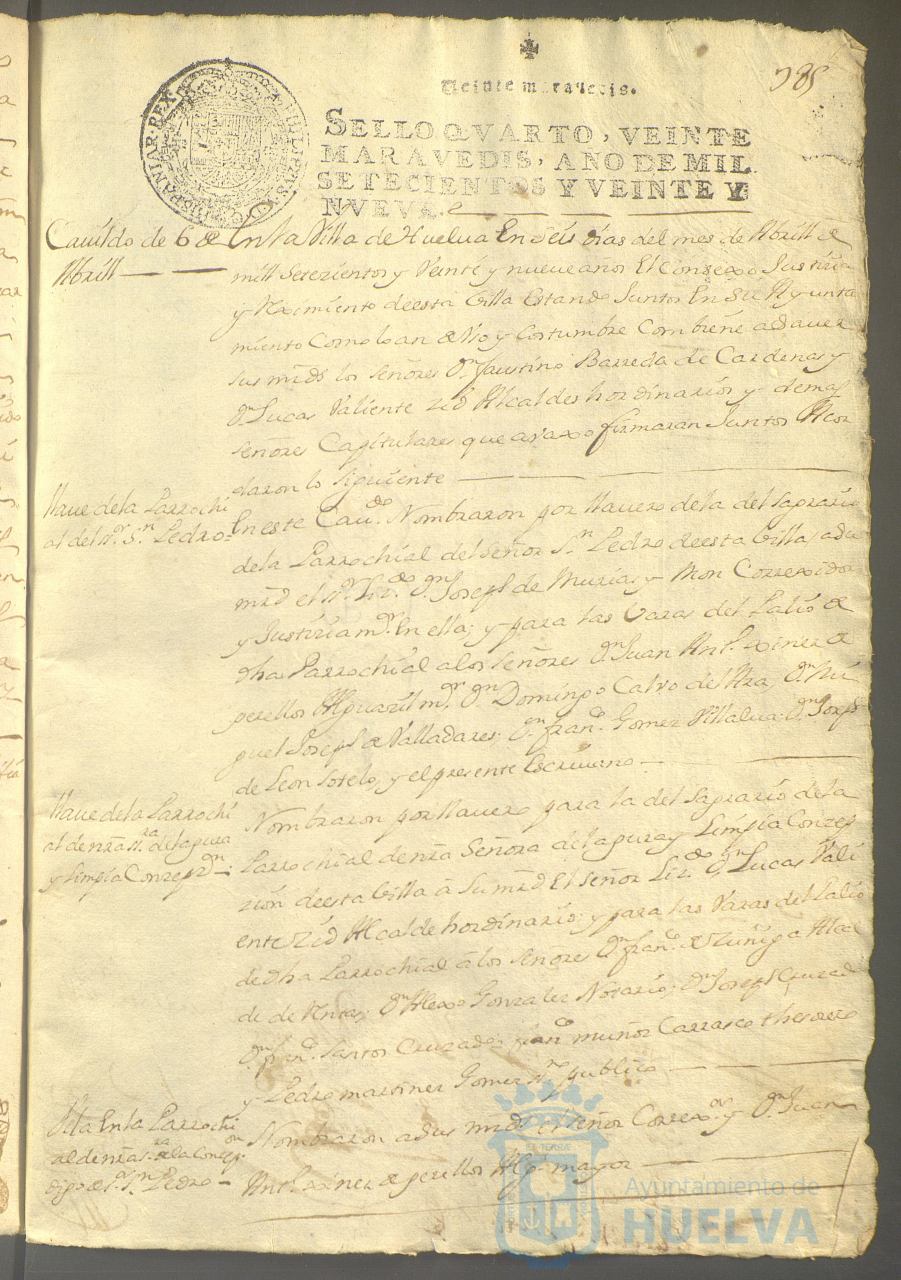 385
Veinte maravedis.
SELLO QVARTO, VEINTE
MARAVEDIS, AÑO DE MIL
SETECIENTOS Y VEINTE Y
NVEVE.
HISPANIAR REX
Cauildo de 6 de
Abrill
En la Villa de Huelua En seis dias del mes de Abrill de
mill setezientos y Veinte y nueue años El Conzexo Justizia
y Reximiento de esta Villa Estando Juntos En su Ayunta
miento Como lo an de Vso y Costumbre Combiene a Sauer
sus mrds los señores Dn faustino Barreda de Cardenas y
Dn Lucas Valiente Zid Alcaldes hordinarios y demas
señores Capitulares que auaxo firmaran Juntos Acor
daron lo siguiente
llaue de la Parrochi
al del Sr. Sn Pedro
En este Caudo Nombraron por llauero de la del Sagrario
de la Parrochial del Señor Sn Pedro de esta Villa a su
mrd el Sr Lizdo Dn Joseph de Murias y Mon Correxidor
y Justizia mr En ella; y para las Varas del Palio de
dha Parrochial a los señores Dn Juan Ant. xinez de
perellos Alguazil mr Dn Domingo Calvo del Ara; Dn Mi
guel Joseph de Valladares; Dn franco Gomez Villalua; Dn Joseph
de Leon Sotelo, y el presente Escriuano
llaue de la Parrochi
al de nra Sra de la pura
y Limpia Conzepzn
Nombraron por llauero para la del Sagrario de la
Parrochial de nra Señora de la pura y Limpia Conzep
zion de esta Villa a su mrd El señor Lizdo Dn Lucas Vali
ente Zid Alcalde hordinario; y para las Varas del Palio
de dha Parrochial a los señores Dn franco de Zuñiga Alcal
de de Antas; Dn Alexo Gonzalez Notario; Dn Joseph Cruzado
Dn franco Santos Cruzado; franco muñoz Carrasco thesorero
y Pedro martinez Gomez publico
En la Parrochi
al de nra Sra de la Conzepn
digo de Sr Sn Pedro
Nombraron a sus mrds el señor Correxor y Dn Juan
Ant. xinez de perellos Algl mayor
Ayuntamiento de
HUELVA